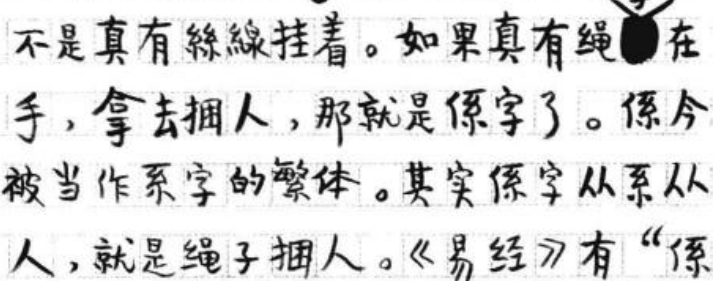 不是真有絲線挂着。如果真有绳在
手，拿去捆人，那就是係字了。係今
被当作系字的繁体。其实係字从系从
人，就是绳子捆人。《易经》有“係